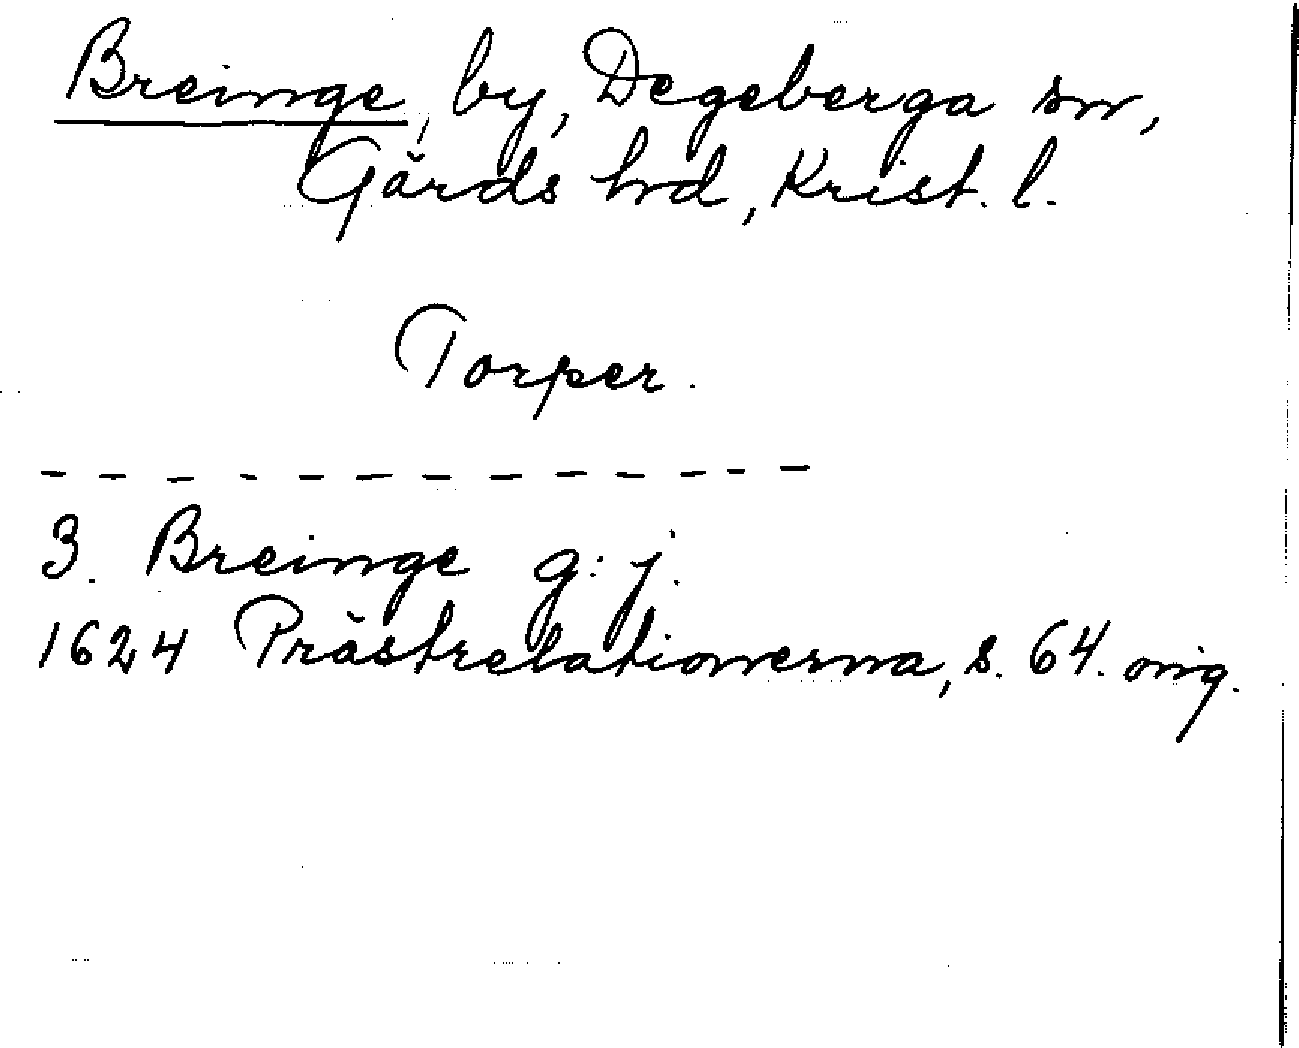 Breinge, by, Degeberga sn,
Gärds hd, Krist. l.
Torper.
3. Breinge g: j.
1624 Prästrelationerna, s. 64. orig.